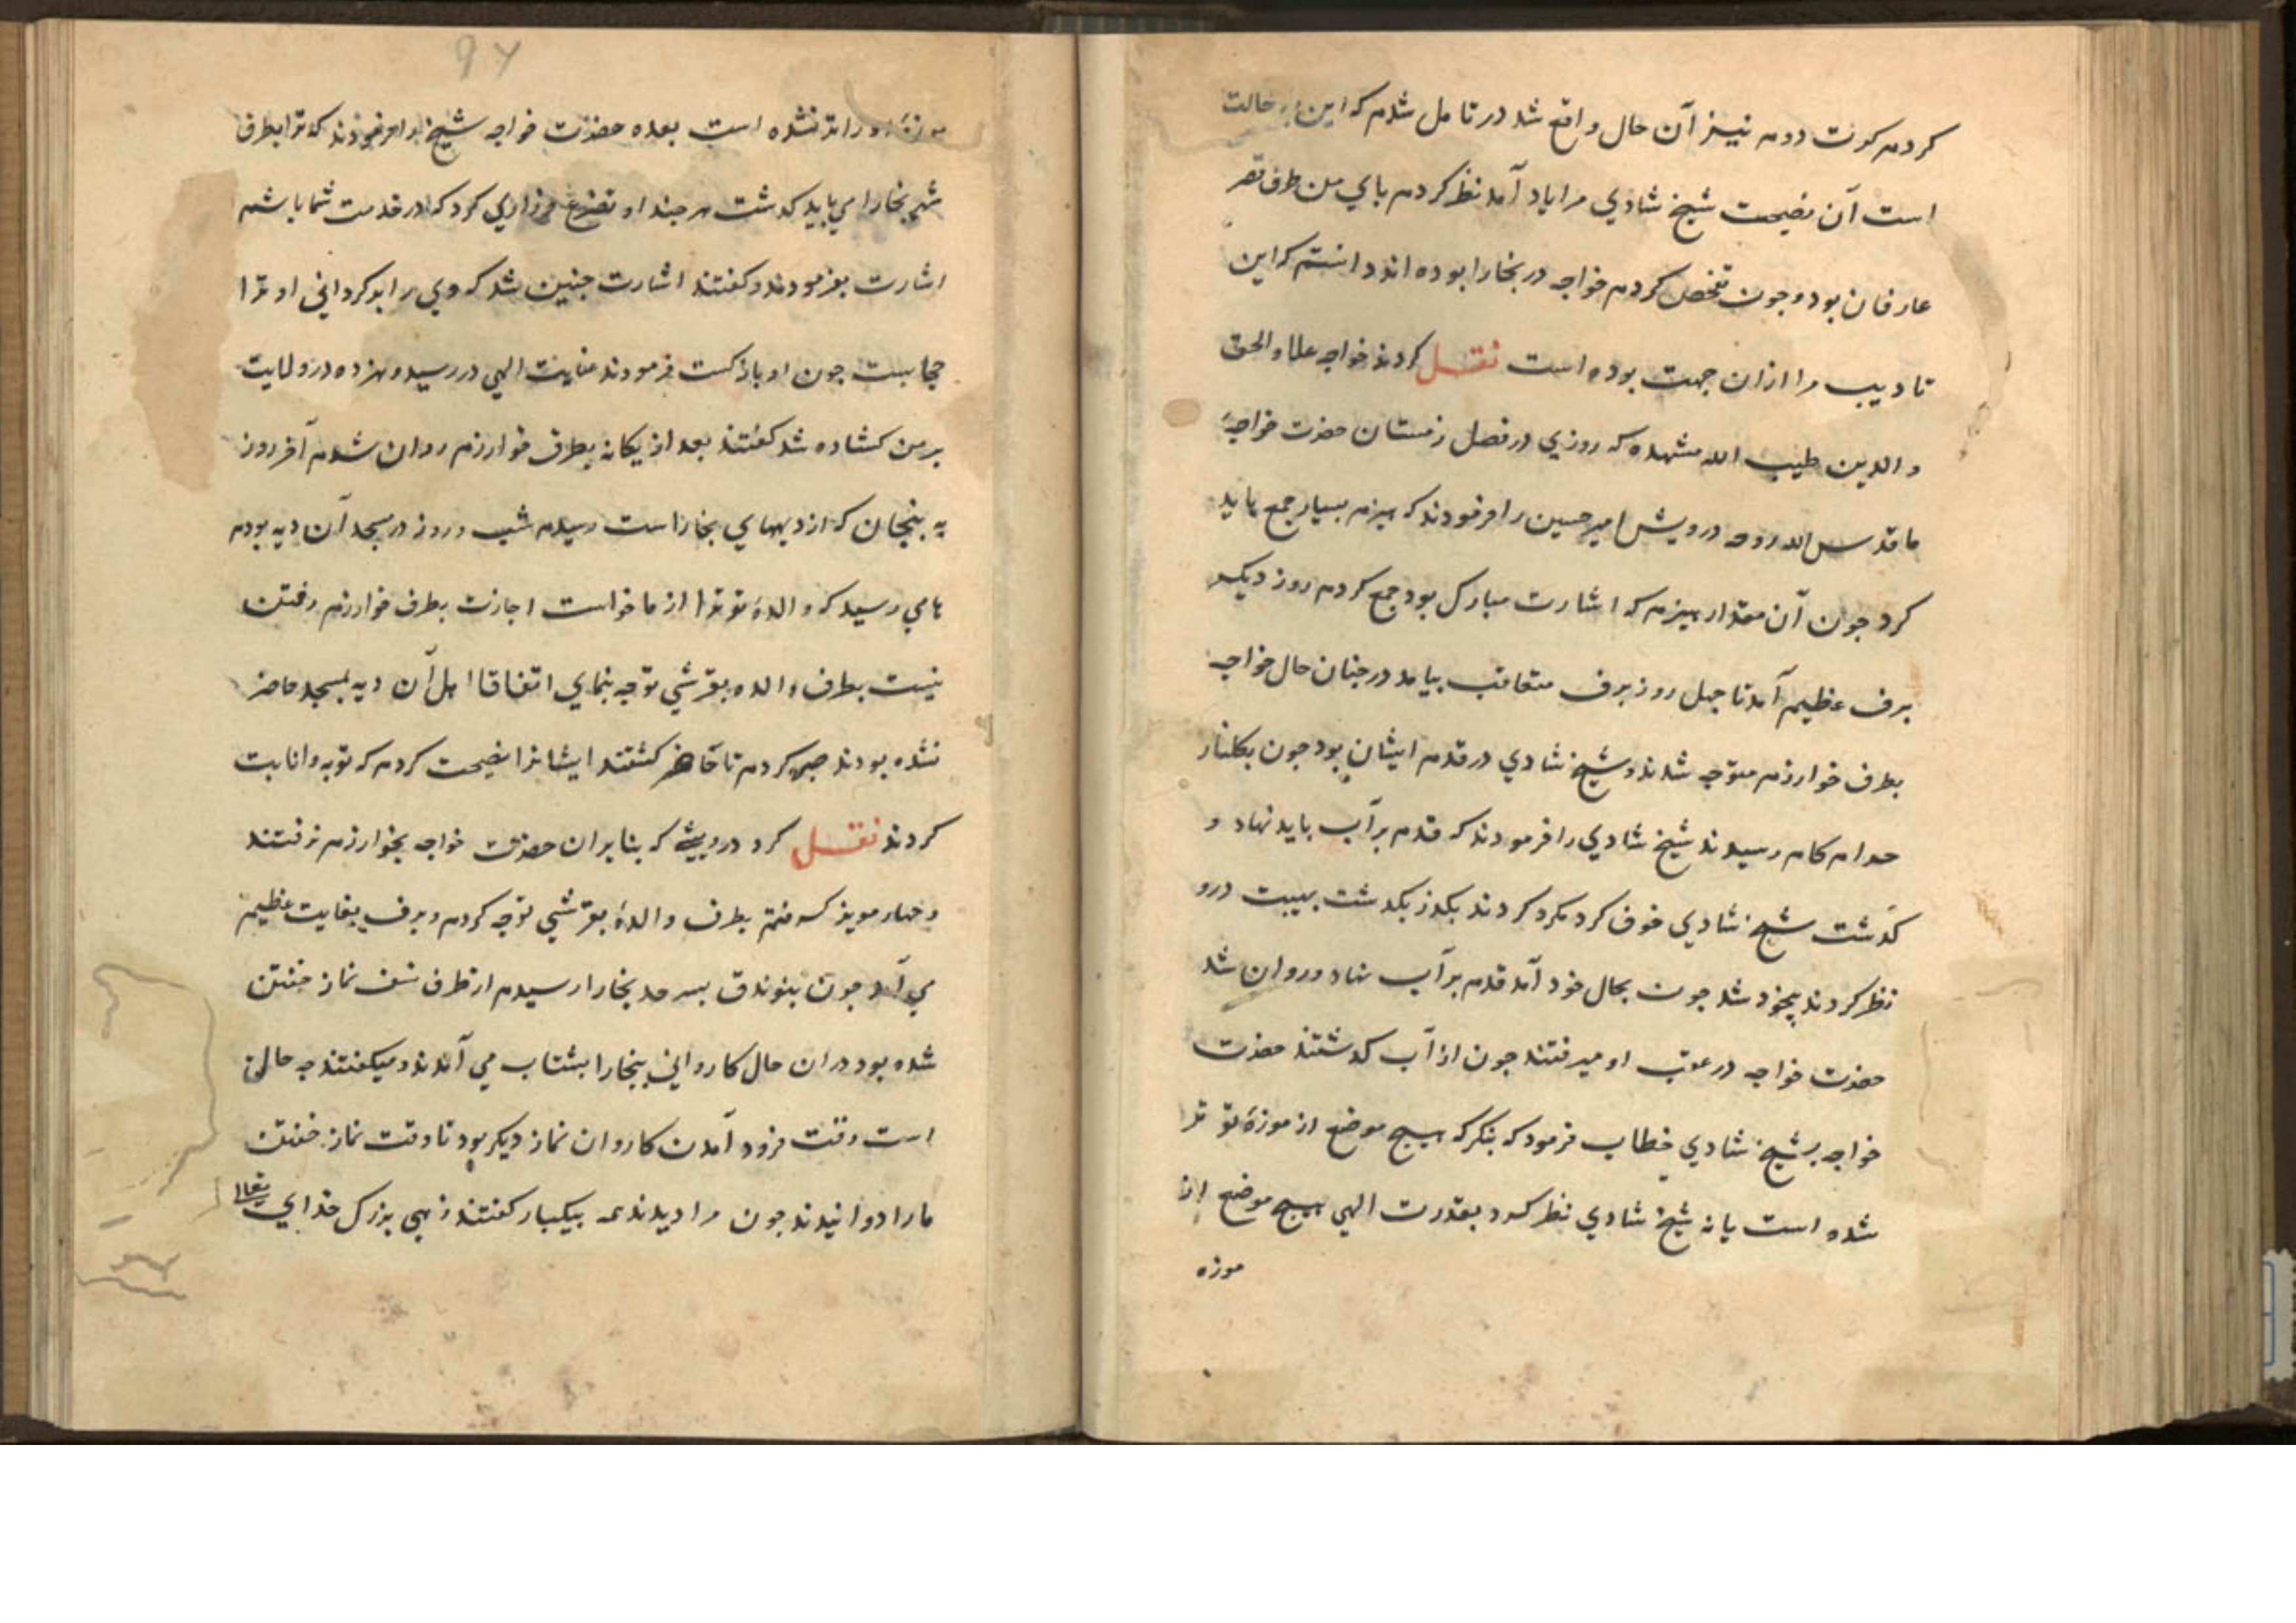 کردم کرت دوم نیز آن حال واقع شد در تامل شدم که این چه حالت
است آن نصیحت شیخ شادي مرا یاد آمد نظر کردم پاي من طرف قصر
عارفان بود و جون تفحص کردم خواجه در بخارا بوده اند دانستم که این
تادیب مرا ازان جهت بوده است نقل کردند خواجه علاء الحق
و الدین طیب الله مشهده که روزي در فصل زمستان حضرت خواجهٔ
ما قدس الله روحه درویش امیر حسین را فرمودند که هیزم بسیار جمع باید
کرد جون آن مقدار هیزم که اشارت مبارک بود جمع کردم روز دیکر
برف عظیم آمد تا جهل روز برف متعاقب بیامد در جنان حال خواجه
بطرف خوارزم متوجه شدند و شیخ شادي در قدم ایشان بود جون بکنار
حرام کام رسیدند شیخ شادي را فرمودند که قدم بر آب باید نهاد و
کذشت شیخ شادي خوف کرد مکرر کردند بکذر بکذشت بهیبت درو
نظر کردند بیخود شد جون بحال خود آمد قدم بر آب نهاد و روان شد
حضرت خواجه در عقب او میرفتند جون از آب کذشتند حضرت
خواجه بشیخ شادي خطاب فرمود که بنکر که هیچ موضع از موزهٔ تو تر
شده است یا نه شیخ شادي نظر کرد بقدرت الهي هیچ موضع از
موزه
۹۷
موزهٔ او را تر نشده است بعده حضرت خواجه شیخ را امر فرمودند که ترا بطرف
شهر بخارا مي باید کذشت هر جند او تضرع و زاري کرد که در خدمت شما باشم
اشارت بفرمودند و کفتند اشارت جنین شد که وي را بر کرداني او ترا
حجابست جون او باز کشت فرمودند عنایت الهي در رسید و هزده در ولایت
بر من کشاده شد کفتند بعد از یکانه بطرف خوارزم روان شدم آخر روز
به بنجان که از دیهاي بخارا است رسیدم شب و روز در مسجد آن دیه بودم
بامي رسید که والدهٔ تو ترا از ما خواست اجازت بطرف خوارزم رفتن
نیست بطرف والده بقرشي توجه بنماي اتفاقا اهل آن دیه بمسجد حاضر
نشده بودند صبر کردم تا حاضر کشتند ایشانرا نصیحت کردم که توبه و انابت
کردند نقل کرد درویشي که بنابران حضرت خواجه بخوارزم نرفتند
و جهار مویز کرفتم بطرف والدهٔ بقرشي توجه کردم و برف بغایت عظیم
مي آمد جون بنوندق بسرحد بخارا رسیدم از طرف نسف نماز خفتن
شده بود دران حال کارواني ببخارا بشتاب مي آمدند و میکفتند جه حالت
است وقت فرود آمدن کاروان نماز دیکر بود تا وقت نماز خفتن
ما را دوانیدند جون مرا دیدند همه بیکبار کفتند زهي بزرک خداي تعالی